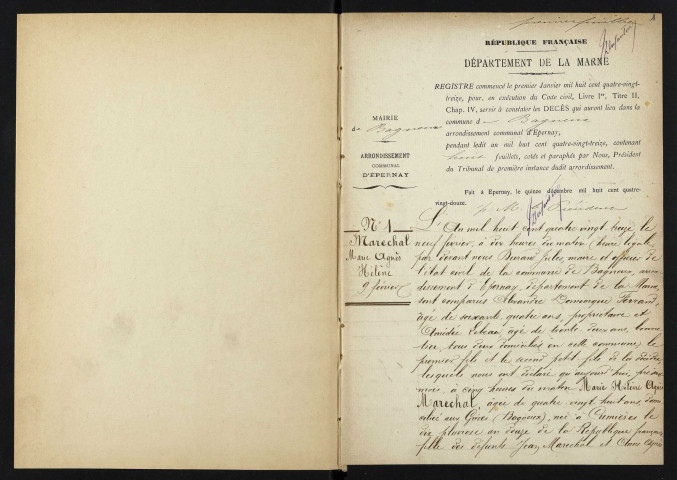 premier feuillet
1
RÉPUBLIQUE FRANÇAISE
DÉPARTEMENT DE LA MARNE
REGISTRE commencé le premier Janvier mil huit cent quatre-vingt-
treize, pour, en exécution du Code civil, Livre Ier, Titre II,
Chap. IV, servir à constater les DÉCÈS qui auront lieu dans la
commune de Bagneux
arrondissement communal d'Epernay,
pendant ledit an mil huit cent quatre-vingt-treize, contenant
feuillets, cotés et paraphés par Nous, Président
du Tribunal de première instance dudit arrondissement.
MAIRIE
de Bagneux
ARRONDISSEMENT
COMMUNAL
D'ÉPERNAY
Fait à Epernay, le quinze décembre mil huit cent quatre-
vingt-douze. p. M. Président
N° 1
Marechal
Marie Agnès
Hélène
9 février
L'An mil huit cent quatre vingt treize le
neuf février, à dix heures du matin (heure légale
par devant nous Jules, maire et officier de
l'état civil de la commune de Bagneux, arron-
dissement d'Epernay, département de la Marne,
sont comparus Alexandre Dominique
âgé de soixante quatre ans, propriétaire et
Amédée âgé de trente deux ans, bonne-
tier, tous deux domiciliés en cette commune, le
premier fils et le second petit fils de la décédée
lesquels nous ont déclaré qu'aujourd'hui,
à cinq heures du matin Marie Hélène Agnès
Marechal, âgée de quatre vingt huit ans, domi-
ciliée aux Grèves (Bagneux), née à le
dix pluviose an douze de la République française
fille des défunts Jean Marechal et